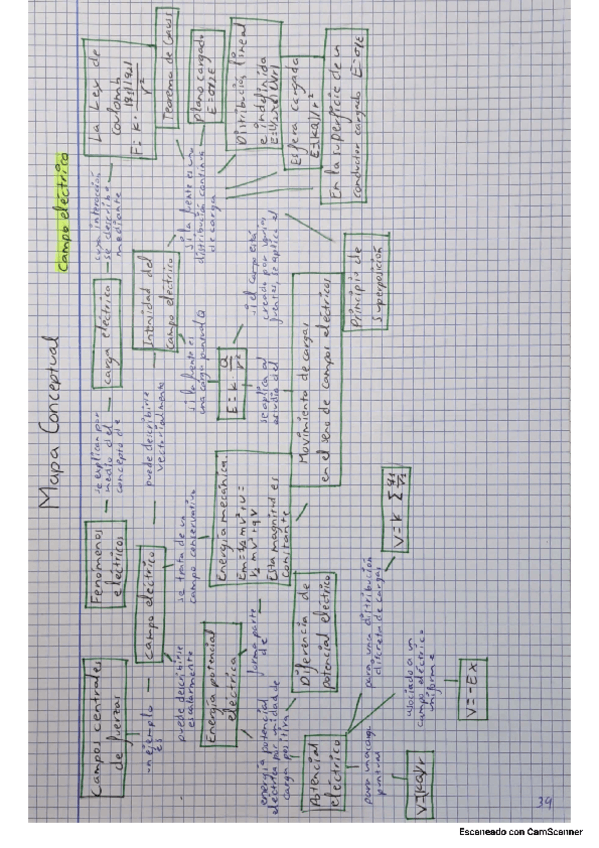 Mapa Conceptual
Campo eléctrico
Campos centrales
de fuerzas
un ejemplo
es
Fenomenos
eléctricos
se explican por
medio del
concepto de
carga eléctrica
cuya interacción
se describe
mediante
La Ley de
Coulomb
F = K ·
r²
campo eléctrico
puede describirse
vectorialmente
Intensidad del
campo eléctrico
Teorema de Gauss
puede describirse
escalarmente
se trata de un
campo conservativo
si la fuente es
una carga puntual Q
si la fuente es una
distribución continua
de carga
plano cargado
Energía potencial
eléctrica
forma parte
de
Energía mecánica
Em = ½ mv² + U =
½ mv² + qV
Esta magnitud es
constante
E = K Q/r²
se aplica al
estudio del
si el campo está
creado por varias
fuentes, se aplica el
Distribución lineal
e indefinida
Esfera cargada
En la superficie de un
conductor cargado
energía potencial
eléctrica por unidad de
carga positiva
Diferencia de
potencial eléctrico
Movimiento de cargas
en el seno de campos eléctricos
Principio de
Superposición
Potencial
eléctrico
para una carga
puntual
para una distribución
discreta de cargas
V = K Σ
asociado a un
campo eléctrico
uniforme
V = KQ/r
V = -Ex
39
Escaneado con CamScanner